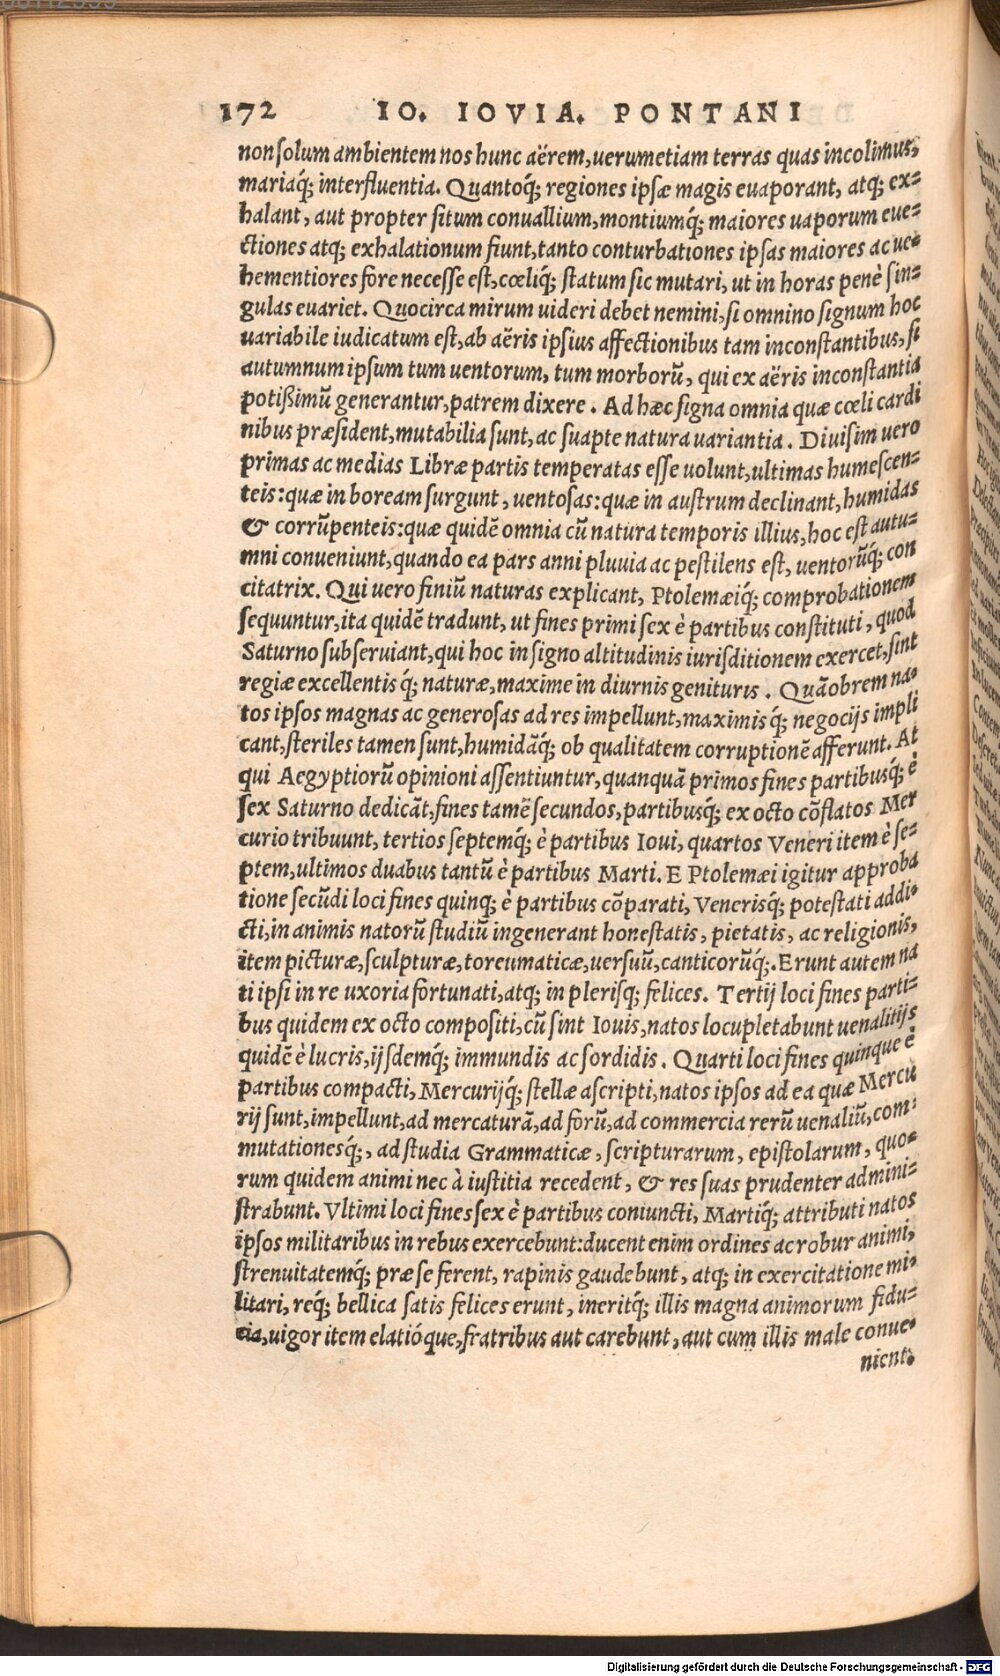 172 IO. IOVIA. PONTANI
non solum ambientem nos hunc aërem, uerumetiam terras quas incolimus,
mariaq́; interfluentia. Quantoq́; regiones ipsæ magis euaporant, atq; ex=
halant, aut propter situm conuallium, montiumq́; maiores uaporum eue=
ctiones atq; exhalationum fiunt, tanto conturbationes ipsas maiores ac ue=
hementiores fore necesse est, cœliq́; statum sic mutari, ut in horas penè sin=
gulas euariet. Quocirca mirum uideri debet nemini, si omnino signum hoc
uariabile iudicatum est, ab aëris ipsius affectionibus tam inconstantibus, si
autumnum ipsum tum uentorum, tum morborũ, qui ex aëris inconstantia
potißimũ generantur, patrem dixere. Ad hæc signa omnia quæ cœli cardi
nibus præsident, mutabilia sunt, ac suapte natura uariantia. Diuisim uero
primas ac medias Libræ partis temperatas esse uolunt, ultimas humescen=
teis: quæ in boream surgunt, uentosas: quæ in austrum declinant, humidas
& corrũpenteis: quæ quidẽ omnia cũ natura temporis illius, hoc est autu=
mni conueniunt, quando ea pars anni pluuia ac pestilens est, uentorũq́; con
citatrix. Qui uero finiũ naturas explicant, Ptolemæiq́; comprobationem
sequuntur, ita quidẽ tradunt, ut fines primi sex è partibus constituti, quod
Saturno subseruiant, qui hoc in signo altitudinis iurisditionem exercet, sint
regiæ excellentisq́; naturæ, maxime in diurnis genituris. Quãobrem na=
tos ipsos magnas ac generosas ad res impellunt, maximisq́; negocijs impli
cant, steriles tamen sunt, humidãq́; ob qualitatem corruptionẽ afferunt. At
qui Aegyptiorũ opinioni assentiuntur, quanquã primos fines partibusq́; è
sex Saturno dedicãt, fines tamẽ secundos, partibusq́; ex octo cõflatos Mer
curio tribuunt, tertios septemq́; è partibus Ioui, quartos Veneri item è se=
ptem, ultimos duabus tantũ è partibus Marti. E Ptolemæi igitur approba
tione secũdi loci fines quinq; è partibus cõparati, Venerisq́; potestati addi=
cti, in animis natorũ studiũ ingenerant honestatis, pietatis, ac religionis,
item picturæ, sculpturæ, toreumaticæ, uersuũ, canticorũq́;. Erunt autem na
ti ipsi in re uxoria fortunati, atq; in plerisq; felices. Tertij loci fines parti=
bus quidem ex octo compositi, cũ sint Iouis, natos locupletabunt uenalitijs
quidẽ è lucris, ijsdemq́; immundis ac sordidis. Quarti loci fines quinque è
partibus compacti, Mercurijq́; stellæ ascripti, natos ipsos ad ea quæ Mercu
rij sunt, impellunt, ad mercaturã, ad forũ, ad commercia rerũ uenaliũ, com=
mutationesq́;, ad studia Grammaticæ, scripturarum, epistolarum, quo=
rum quidem animi nec à iustitia recedent, & res suas prudenter admini=
strabunt. Vltimi loci fines sex è partibus coniuncti, Martiq́; attributi natos
ipsos militaribus in rebus exercebunt: ducent enim ordines ac robur animi,
strenuitatemq́; præ se ferent, rapinis gaudebunt, atq; in exercitatione mi=
litari, req́; bellica satis felices erunt, ineritq́; illis magna animorum fidu=
cia, uigor item elatióque, fratribus aut carebunt, aut cum illis male conue=
nient.
Digitalisierung gefördert durch die Deutsche Forschungsgemeinschaft - DFG